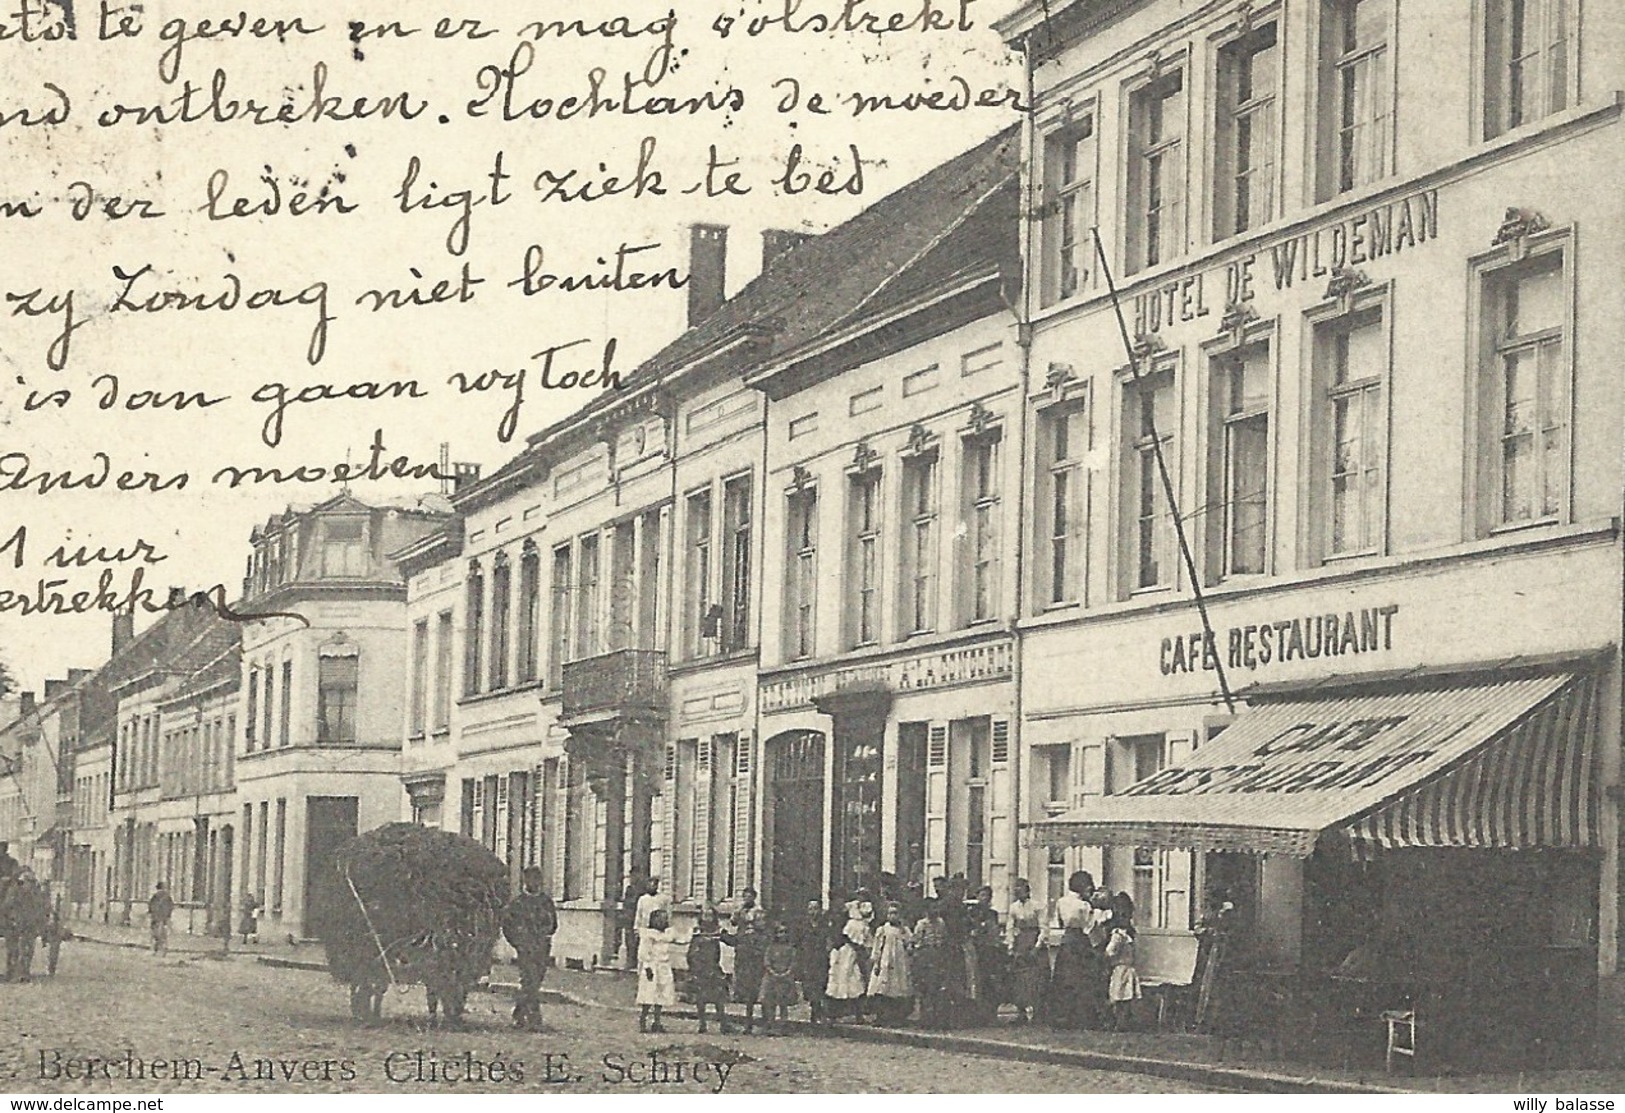 te geven en er mag volstrekt
ontbreken. Nochtans de moeder
der leden ligt ziek te bed
zy Zondag niet buiten
is dan gaan wy toch
Anders moeten
1 uur
ertrekken
HOTEL DE WILDEMAN
CAFE RESTAURANT
CAFE
RESTAURANT
A LA
Berchem-Anvers Clichés E. Schrey
www.delcampe.net
willy balasse